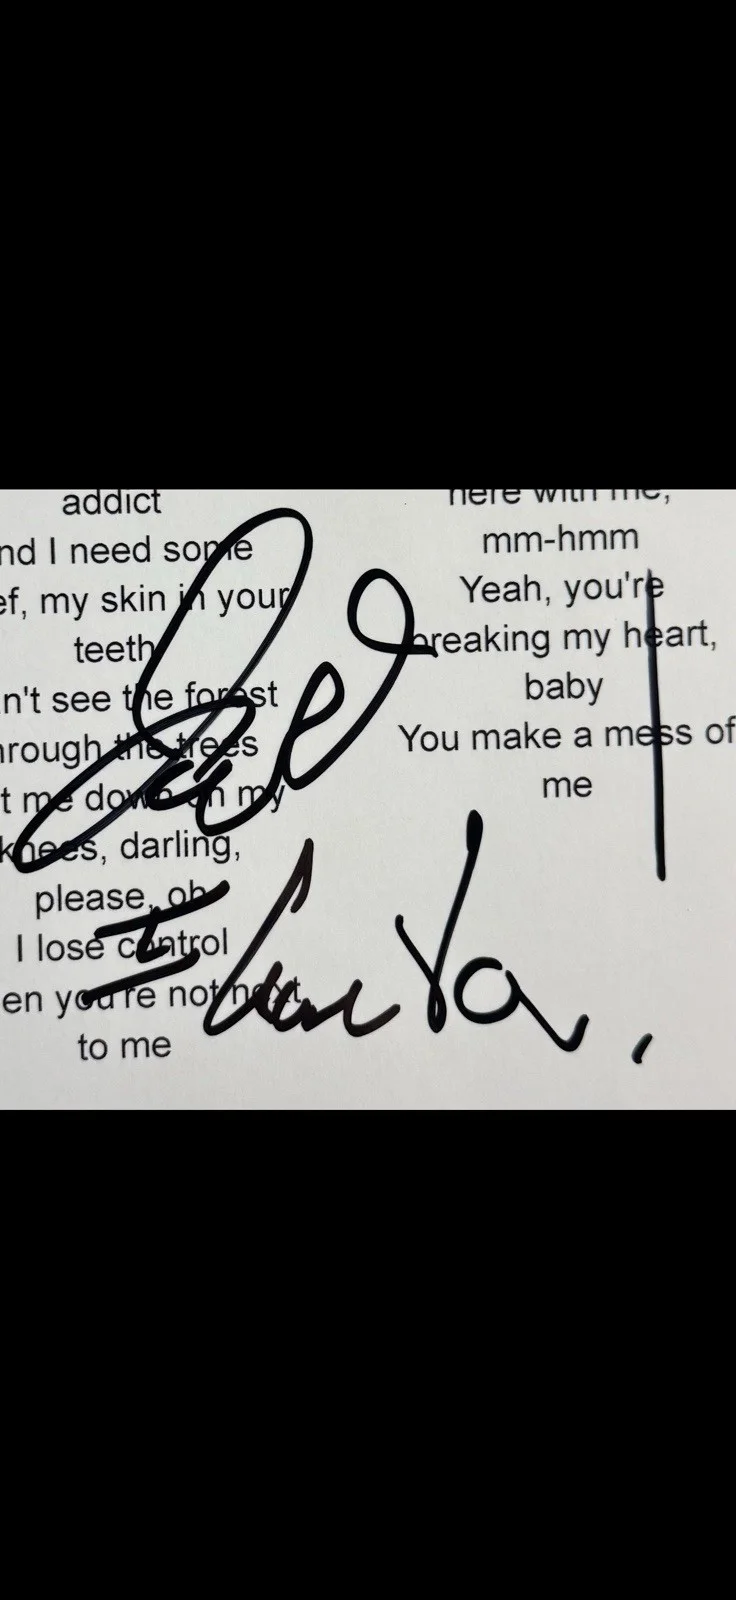 addict
nd I need some
ef, my skin in your
teeth
n't see the forest
hrough the trees
t me down on my
knees, darling,
please, oh
I lose control
en you're not next
to me
here with me,
mm-hmm
Yeah, you're
breaking my heart,
baby
You make a mess of
me
I Love Ya